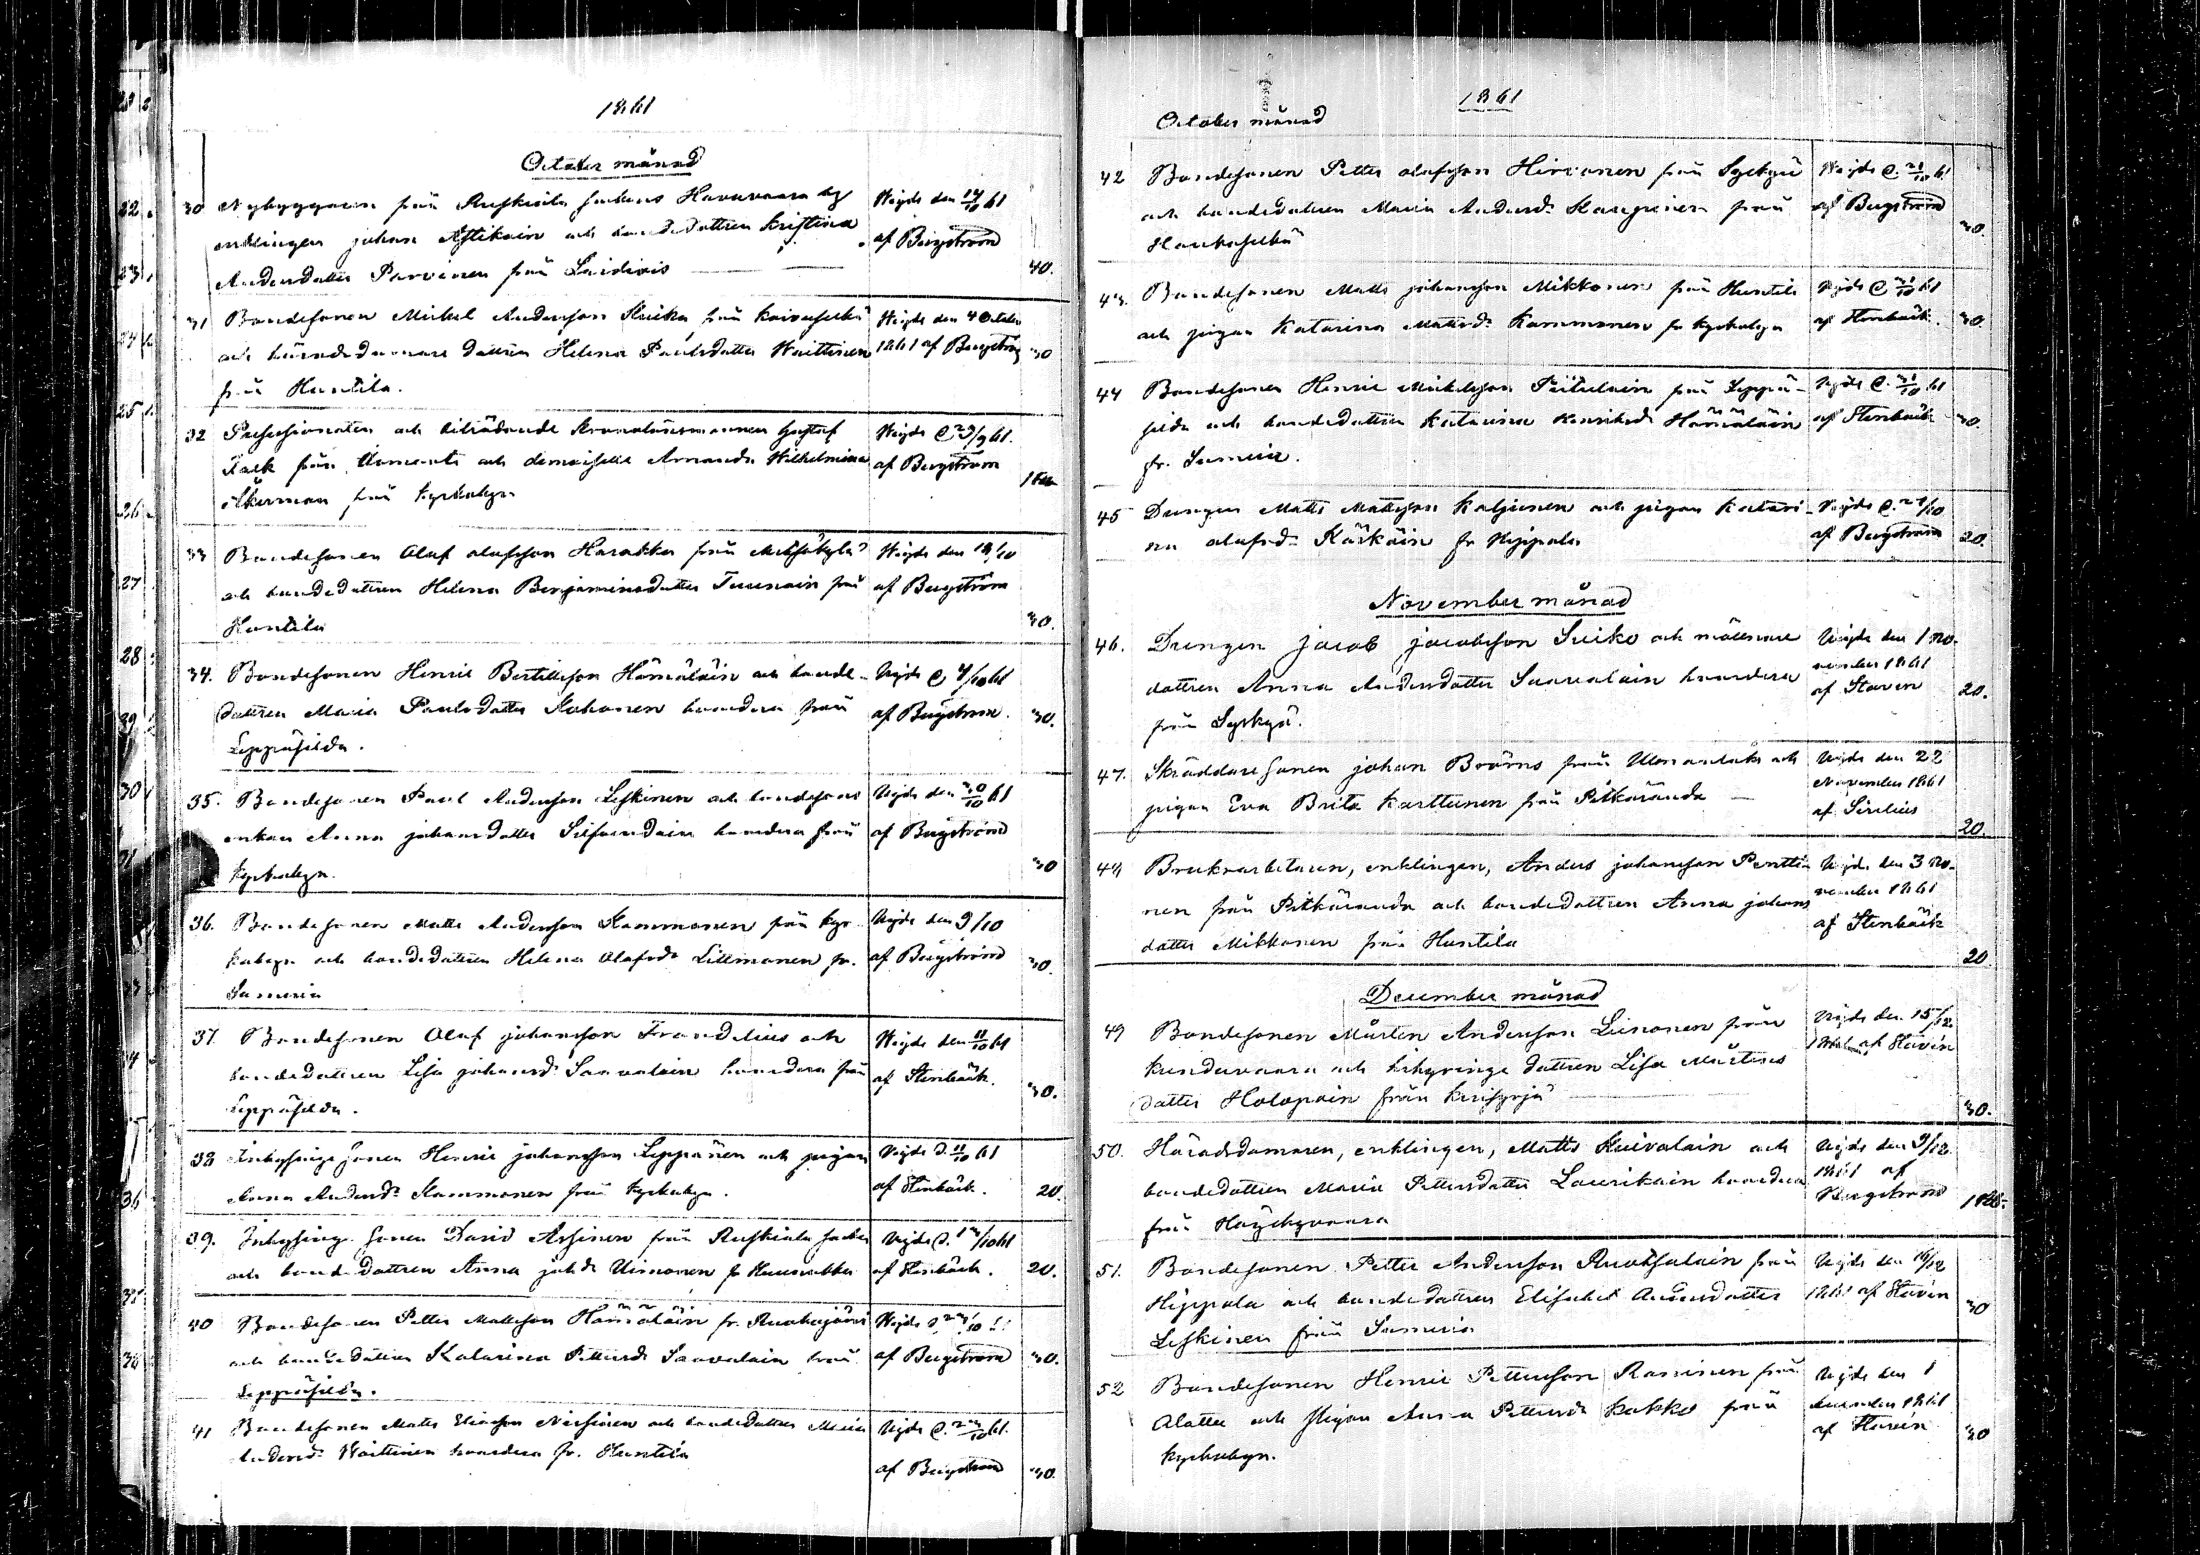 1861
October månad
30 Nybyggaren från Ruskiala sockens Havuvaara by
enklingen johan Astikain och bondedottren Kristina
Andersdotter Parvinen från Laidiois
Wigde den 14/10 61
af Bergström
40.
31 Bondesonen Mickel Andersson Kuika från Koivuselkä
och häradsdomare dottren Helena Paulsdotter Waittinen
från Huntila.
Wigde den 4 October
1861 af Bergström
30
32 och biträdande Gustaf
Falk från och demoiselle Amanda Wilhelmina
Åkerman från Kyrkobyn
Wigde d. 29/9 61.
af Bergström
33 Bondesonen Olof olofsson Harakka från
och bondedottren Helena Benjaminsdotter Tuunain från
Huntila
Wigde den 18/10
af Bergström
30.
34. Bondesonen Henric Bertillsson Hämäläin och bonde-
dottren Maria Paulsdotter Kohonen boendera från
Leppäsilda.
Wigde d. 4/10 61
af Bergström.
30.
35. Bondesonen Paul Andersson Leskinen och bondesons
enkan Anna johansdotter boendera från
Kyrkobyn.
Wigde den 20/10 61
af Bergström
30
36. Bondesonen Matts Andersson Kammonen från Kyr-
kobyn och bondedottren Helena Olofsdr Littmanen fr.
Sumeria
Wigde den 9/10
af Bergström
30.
37. Bondesonen Olof johansson Frandelius och
bondedottren Lisa johansdr Saavalain boendera från
Leppäsilda.
Wigde den 11/10 61
af Stenbäck.
30.
38 Inhysinge sonen Henric johansson Leppänen och pigan
Anna Andersdr Kammonen från Kyrkobyn.
Wigde d. 11/10 61
af Stenbäck.
20.
39. Inhysinge sonen David Assinen från Ruskiala socken
och bondedottren Anna johdr Uimonen fr
Wigde d. 13/10 61
af Stenbäck.
20.
40 Bondesonen Petter Mattsson Hämäläin fr. Ruokojärvi
och bondedottren Katarina Pettersdr Saavalain från
Leppäsilda.
Wigde d.
af Bergström
30.
41 Bondesonen Matts Eliasson Nissinen och bondedottren Maria
Andersdr Waittinen boendera fr. Huntila
Wigde d. 61.
af Bergström
30.
1861
October månad
42 Bondesonen Petter olofsson Hirvonen från Syskyä
och bondedottren Maria Andersdr Kauppinen från
Haukaselkä
Wigde d. 21/10 61
af Bergström
30.
43. Bondesonen Matts johansson Mikkonen från Huntila
och pigan Katarina Mattsdr Kammonen fr Kyrkobyn
Wigde d. 61
af Stenbäck.
30.
44 Bondesonen Henric Mickelsson Piitulain från Leppä-
silda och bondedottren Katarina Henriksdr Hämäläin
fr. Sumeria.
Wigde d. 61
af Stenbäck
30.
45 Drengen Matts Mattsson Kaljunen och pigan Katari-
na olofsdr Kärkäin fr Hippola
Wigde d. 27/10
af Bergström
20.
November månad
46. Drengen jacob jacobsson Suiko och möllnare
dottren Anna Andersdotter Saavalain boendera
från Syskyä.
Wigde den 1 no-
vember 1861
af Staven
20.
47. Skräddaresonen johan Broms från och
pigan Eva Brita Karttunen från Pitkäranda
Wigde den 22
November 1861
af Sirelius
20.
48 Bruksarbetaren, enklingen, Anders johansson Pentti-
nen från Pitkäranda och bondedottren Anna johans
dotter Mikkonen från Huntila
Wigde den 3 no-
vember 1861
af Stenbäck
20
December månad
49 Bondesonen Mårten Andersson Liinonen från
Kunduvaara och inhysinge dottren Lisa Mårtens
dotter Holopain från Kirisyrjä
Wigde den 15/12
af Stavén
30.
50. Häradsdomaren, enklingen, Matts Kuivalain och
bondedottren Maria Pettersdotter Laurikain boendera
från
Wigde den 9/12
1861 af
Bergström
51. Bondesonen Petter Andersson Ruotsalain från
Hippola och bondedottren Elisabet Andersdotter
Leskinen från Sumeria
Wigde den 16/12
1861 af Stavén
30
52 Bondesonen Henric Pettersson Raninen från
Alattu och pigan Anna Pettersdr Kokko från
Kyrkobyn.
Wigde den 1
december 1861
af Stavén
30